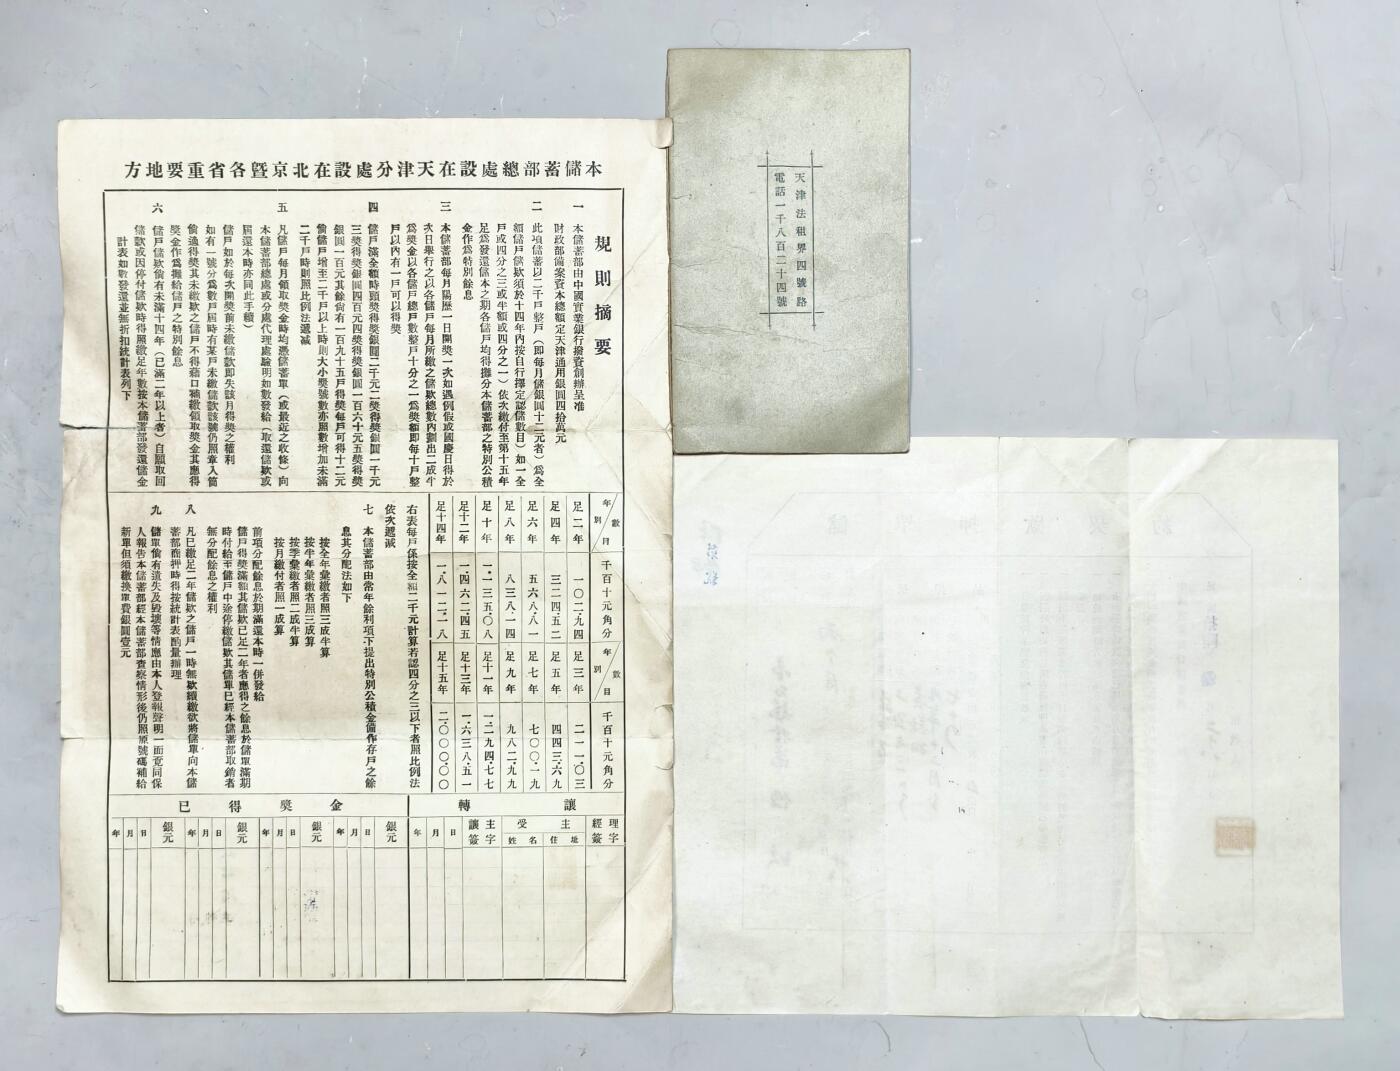 本儲蓄部總處設在天津分處設在北京暨各省重要地方
規則摘要
一 本儲蓄部由中國實業銀行撥資創辦呈准
財政部備案資本總額定天津通用銀圓四拾萬元
二 此項儲蓄以二千戶整戶（即每月儲銀圓十二元者）為全
額儲戶儲欵須於十四年內按自行擇定認儲數目）如一全
戶或四分之三或半額或四分之一）依次繳付至第十五年
足為發還儲本之期各儲戶均得攤分本儲蓄部之特別公積
金作為特別餘息
三 本儲蓄部每月陽歷一日開獎一次如遇例假或國慶日得於
次日舉行之以各儲戶每月所繳之儲欵總數內劃出二成半
為獎金以各儲戶總戶數整戶十分之一為獎額即每十戶整
戶以內有一戶可以得獎
四 儲戶滿全額時頭獎得獎銀圓二千元二獎得獎銀圓一千元
三獎得獎銀圓四百元四獎得獎銀圓一百六十元五獎得獎
銀圓一百元其餘尙有一百九十五戶得獎每戶可得十二元
倘儲戶增至二千戶以上時則大小獎號數亦照數增加未滿
二千戶時則照比例法遞減
五 凡儲戶每月領取獎金時均憑儲蓄單（或最近之收條）向
本儲蓄部總處或分處代理處驗明如數發給（取還儲欵或
屆還本時亦同此手續）
儲戶如於每次開獎前未繳儲欵即失該月得獎之權利
如有一號分為數戶屆時有某戶未繳儲欵該號仍照章入筒
倘適得獎其未繳欵之儲戶不得藉口補繳領取獎金其應得
獎金作為攤給儲戶之特別餘息
六 儲戶儲欵倘有未滿十四年（已滿二年以上者）自願取回
儲欵或因停付儲欵時得照繳足年數按本儲蓄部發還儲金
計表如數發還並無折扣統計表列下
年別 數目 千百十元角分
足二年 一〇二·九四
足四年 三二四·五二
足六年 五六八·八一
足八年 八三八·一四
足十年 一·一三五·〇八
足十二年 一·四六二·四五
足十四年 一·八一二·一八
年別 數目 千百十元角分
足三年 二一一·〇三
足五年 四四三·六九
足七年 七〇〇·一九
足九年 九八二·九九
足十一年 一·二九四·七七
足十三年 一·六三八·五一
足十五年 二·〇〇〇·〇〇
右表每戶係按全額二千元計算若認四分之三以下者照比例法
依次遞減
七 本儲蓄部由常年餘利項下提出特別公積金備作存戶之餘
息其分配法如下
按全年彙繳者照三成半算
按半年彙繳者照三成算
按季彙繳者照二成半算
按月繳付者照一成算
前項分配餘息於期滿還本時一併發給
儲戶得獎滿額其儲欵已足二年者應得之餘息於儲單滿期
時付給至儲戶中途停繳儲欵其儲單已經本儲蓄部取銷者
無分配餘息之權利
八 凡已繳足二年儲欵之儲戶一時無欵續繳欲將儲單向本儲
蓄部商押時得按統計表酌量辦理
九 儲單倘有遺失及毀壞等情應由本人登報聲明一面覓同保
人報告本儲蓄部經本儲蓄部查察情形後仍照原號碼補給
新單但須繳換單費銀圓壹元
讓轉
經理簽字
受主
住址
姓名
讓主簽字
年月日
金獎得已
銀元
年月日
銀元
年月日
銀元
年月日
銀元
年月日
天津法租界四號路
電話一千八百二十四號